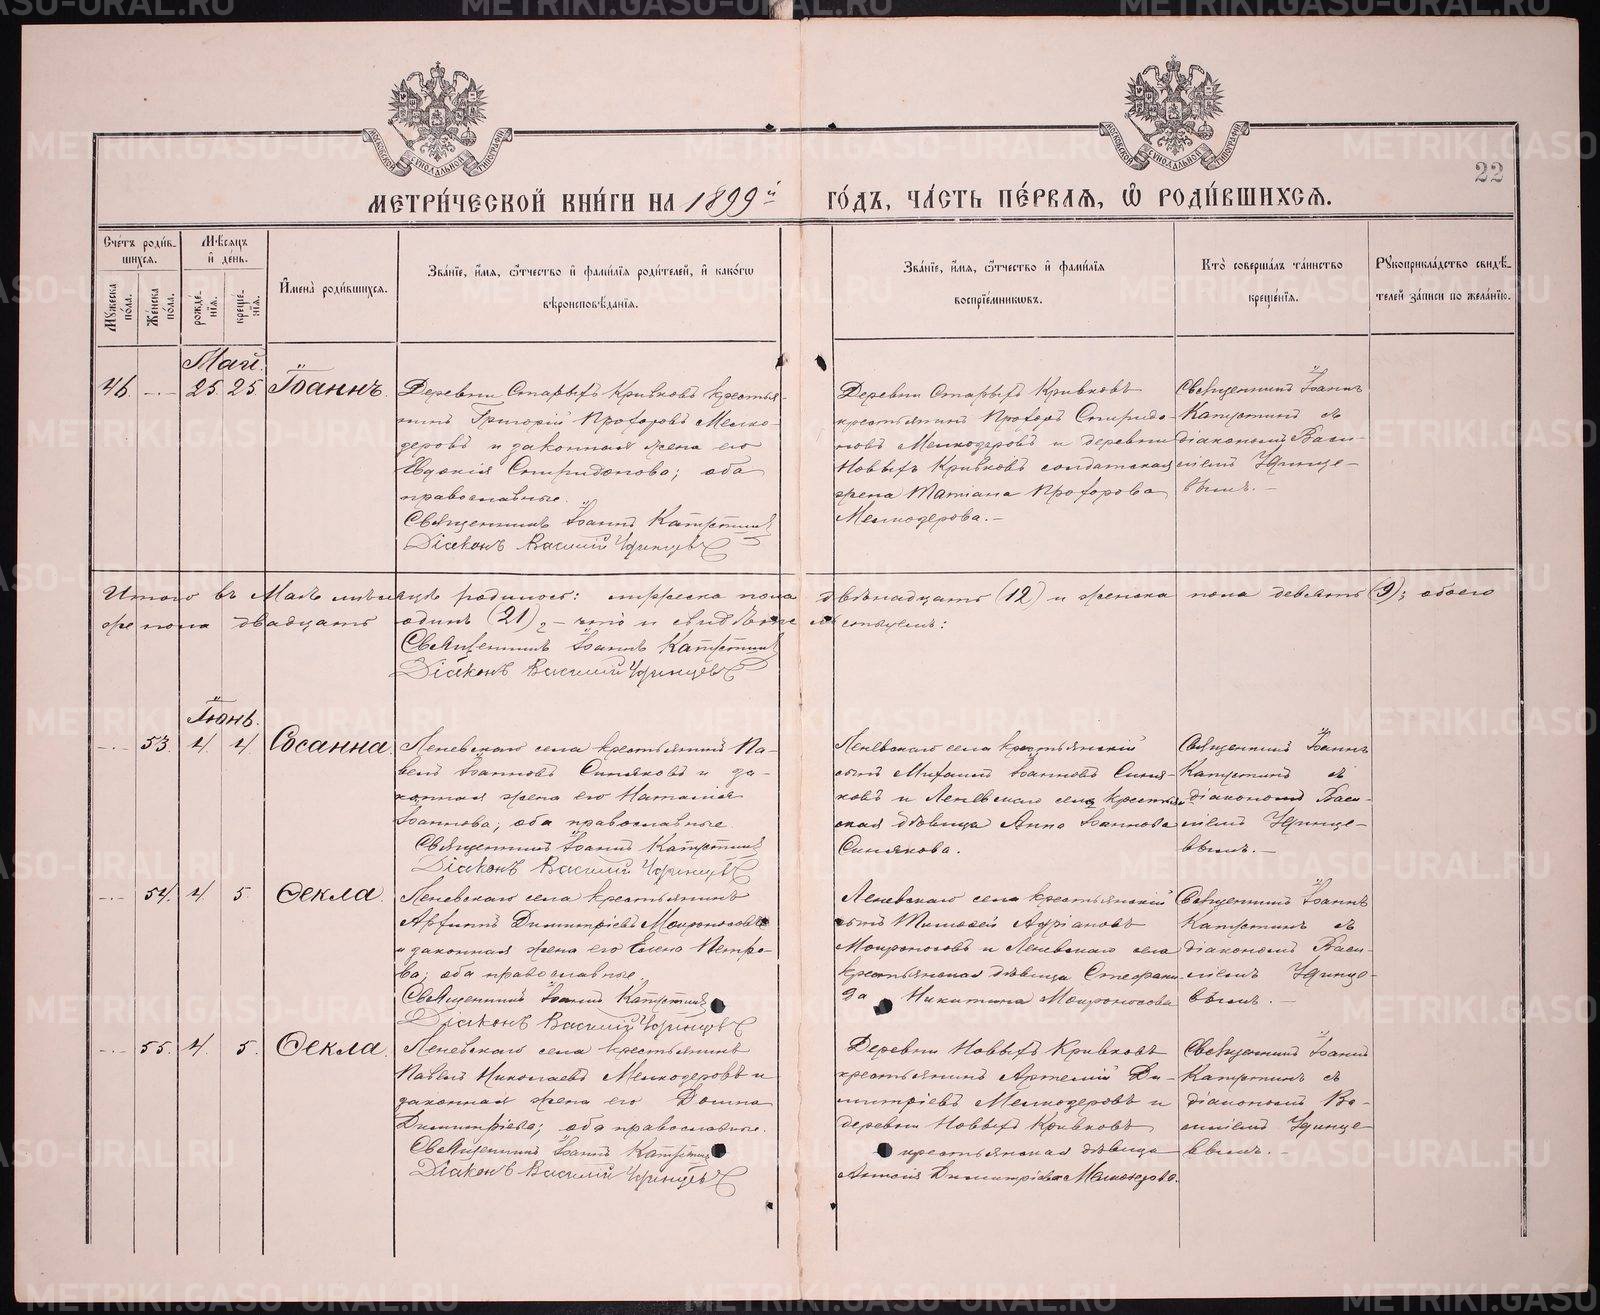 22
МЕТРИ́ЧЕСКОЙ КНИ́ГИ НА 1899й ГО́ДЪ, ЧА́СТЬ ПЕ́РВАѦ, Ѽ РОДИ́ВШИХСѦ.
Сче́тъ роди́в-
шихсѧ.
Мꙋжеска по́ла.
Женска по́ла.
Мѣсѧцъ
и҆ де́нь.
рожде́-
нїѧ.
креще́-
нїѧ.
И҆мена̀ роди́вшихсѧ.
Зва́нїе, и҆́мѧ, ѻ҆́тчество и҆ фами́лїѧ роди́телей, и҆ како́гѡ
вѣроисповѣ́данїѧ.
Зва́нїе, и҆́мѧ, ѻ҆́тчество и҆ фами́лїѧ
воспрїе́мникѡвъ.
Кто̀ соверша́лъ та́инство
креще́нїѧ.
Рꙋкоприкла́дство свидѣ́-
телей за́писи по жела́нїю.
Май.
46 -.- 25. 25. Іоаннъ.
Деревни Старыхъ Кривковъ крестья-
нинъ Григорій Прохоровъ Мелко-
деровъ и законная жена его
Евдокія Спиридонова; оба
православные.
Священникъ Іоаннъ Капустинъ
Діаконъ Василій Удинцевъ
Деревни Старыхъ Кривковъ
крестьянинъ Прохоръ Спиридо-
новъ Мелкодеровъ и деревни
Новыхъ Кривковъ солдатская
жена Татіана Прохорова
Мелкодерова.-
Священникъ Іоаннъ
Капустинъ съ
діакономъ Васи-
ліемъ Удинце-
вымъ.-
Итого въ Маѣ мѣсяцѣ родилось: мужеска пола двѣнадцать (12) и женска пола девять (9); обоего
же пола двадцать одинъ (21), - что и свидѣтельствуемъ:
Священникъ Іоаннъ Капустинъ
Діаконъ Василій Удинцевъ
Іюнь.
-.- 53. 4. 4. Сосанна.
Леневскаго села крестьянинъ Па-
велъ Іоанновъ Синяковъ и за-
конная жена его Наталія
Іоаннова; оба православные
Священникъ Іоаннъ Капустинъ
Діаконъ Василій Удинцевъ
Леневскаго села крестьянскій
сынъ Михаилъ Іоанновъ Синя-
ковъ и Леневскаго села крестьян-
ская дѣвица Анна Іоаннова
Синякова.
Священникъ Іоаннъ
Капустинъ съ
діакономъ Васи-
ліемъ Удинце-
вымъ.-
-.- 54. 4. 5. Ѳекла.
Леневскаго села крестьянинъ
Димитріевъ Мокроносовъ
и законная жена его Елена Петро-
ва; оба православные.
Священникъ Іоаннъ Капустинъ
Діаконъ Василій Удинцевъ
Леневскаго села крестьянскій
сынъ Тимоѳей Адріановъ
Мокроносовъ и Леневскаго села
крестьянская дѣвица Стефани-
да Никитина Мокроносова
Священникъ Іоаннъ
Капустинъ съ
діакономъ Васи-
ліемъ Удинце-
вымъ.-
-.- 55. 4. 5. Ѳекла.
Леневскаго села крестьянинъ
Павелъ Николаевъ Мелкодеровъ и
законная жена его Домна
Димитріева; оба православные.
Священникъ Іоаннъ Капустинъ
Діаконъ Василій Удинцевъ
Деревни Новыхъ Кривковъ
крестьянинъ Артемій Ди-
митріевъ Мелкодеровъ и
деревни Новыхъ Кривковъ
крестьянская дѣвица
Димитріева Мелкодерова.
Священникъ Іоаннъ
Капустинъ съ
діакономъ Ва-
силіемъ Удинце-
вымъ.-
METRIKI.GASO-URAL.RU